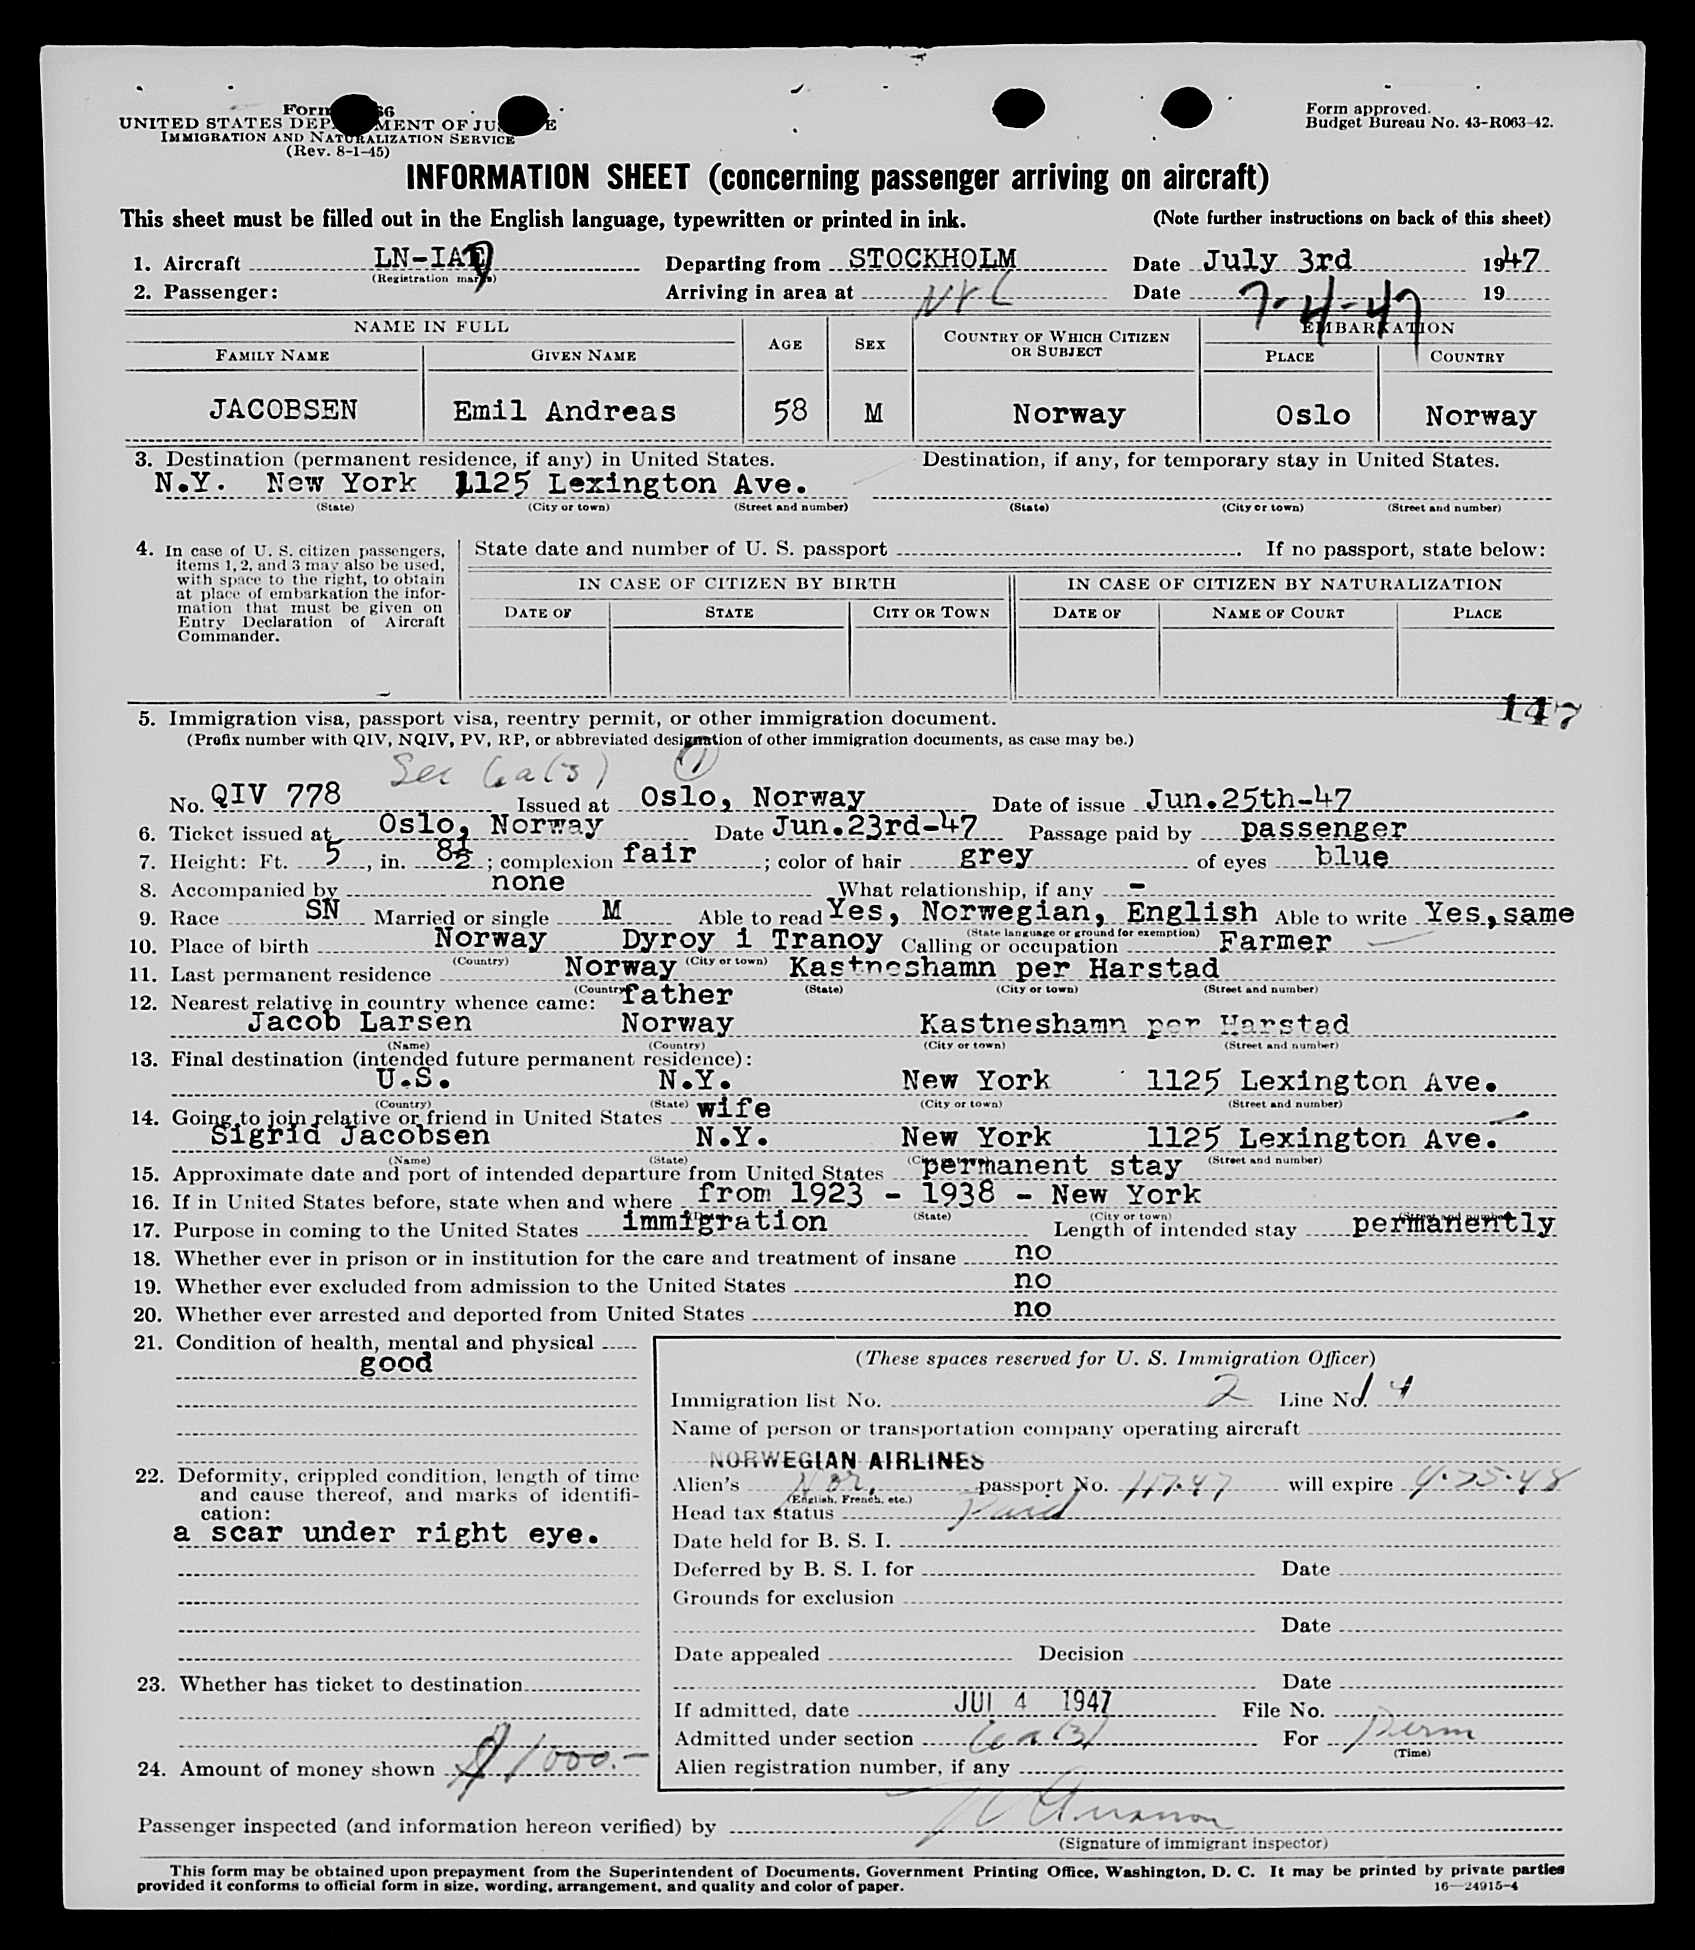 Form 66
UNITED STATES DEPARTMENT OF JUSTICE
IMMIGRATION AND NATURALIZATION SERVICE
(Rev. 8-1-45)
Form approved.
Budget Bureau No. 43-R063-42.
INFORMATION SHEET (concerning passenger arriving on aircraft)
This sheet must be filled out in the English language, typewritten or printed in ink. (Note further instructions on back of this sheet)
1. Aircraft LN-IAE Departing from STOCKHOLM Date July 3rd 1947
(Registration marks)
2. Passenger: Arriving in area at NYC Date 7-4-47 19
NAME IN FULL AGE SEX COUNTRY OF WHICH CITIZEN OR SUBJECT EMBARKATION
FAMILY NAME GIVEN NAME PLACE COUNTRY
JACOBSEN Emil Andreas 58 M Norway Oslo Norway
3. Destination (permanent residence, if any) in United States. Destination, if any, for temporary stay in United States.
N.Y. New York 1125 Lexington Ave.
(State) (City or town) (Street and number) (State) (City or town) (Street and number)
4. In case of U. S. citizen passengers, items 1, 2, and 3 may also be used, with space to the right, to obtain at place of embarkation the information that must be given on Entry Declaration of Aircraft Commander.
State date and number of U. S. passport . If no passport, state below:
IN CASE OF CITIZEN BY BIRTH IN CASE OF CITIZEN BY NATURALIZATION
DATE OF STATE CITY OR TOWN DATE OF NAME OF COURT PLACE
147
5. Immigration visa, passport visa, reentry permit, or other immigration document.
(Prefix number with QIV, NQIV, PV, RP, or abbreviated designation of other immigration documents, as case may be.)
Sec 6a(3) (1)
No. QIV 778 Issued at Oslo, Norway Date of issue Jun.25th-47
6. Ticket issued at Oslo, Norway Date Jun.23rd-47 Passage paid by passenger
7. Height: Ft. 5, in. 8½; complexion fair; color of hair grey of eyes blue
8. Accompanied by none What relationship, if any -
9. Race SN Married or single M Able to read Yes, Norwegian, English Able to write Yes, same
(State language or ground for exemption)
10. Place of birth Norway Dyroy i Tranoy Calling or occupation Farmer
(Country) (City or town)
11. Last permanent residence Norway Kastneshamn per Harstad
(Country) (State) (City or town) (Street and number)
12. Nearest relative in country whence came: father
Jacob Larsen Norway Kastneshamn per Harstad
(Name) (Country) (City or town) (Street and number)
13. Final destination (intended future permanent residence):
U.S. N.Y. New York 1125 Lexington Ave.
(Country) (State) (City or town) (Street and number)
14. Going to join relative or friend in United States wife
Sigrid Jacobsen N.Y. New York 1125 Lexington Ave.
(Name) (State) (City or town) (Street and number)
15. Approximate date and port of intended departure from United States permanent stay
16. If in United States before, state when and where from 1923 - 1938 - New York
(State) (City or town) (Street and number)
17. Purpose in coming to the United States immigration Length of intended stay permanently
18. Whether ever in prison or in institution for the care and treatment of insane no
19. Whether ever excluded from admission to the United States no
20. Whether ever arrested and deported from United States no
21. Condition of health, mental and physical
good
22. Deformity, crippled condition, length of time and cause thereof, and marks of identification:
a scar under right eye.
23. Whether has ticket to destination
24. Amount of money shown $1000.-
(These spaces reserved for U. S. Immigration Officer)
Immigration list No. 2 Line No. 14
Name of person or transportation company operating aircraft
NORWEGIAN AIRLINES
Alien's Nor. passport No. 117-47 will expire 4-25-48
(English, French, etc.)
Head tax status Paid
Date held for B. S. I.
Deferred by B. S. I. for Date
Grounds for exclusion
Date
Date appealed Decision
Date
If admitted, date JUL 4 1947 File No.
Admitted under section 6a(3) For Perm
(Time)
Alien registration number, if any
Passenger inspected (and information hereon verified) by
(Signature of immigrant inspector)
This form may be obtained upon prepayment from the Superintendent of Documents, Government Printing Office, Washington, D. C. It may be printed by private parties
provided it conforms to official form in size, wording, arrangement, and quality and color of paper. 16—24915-4